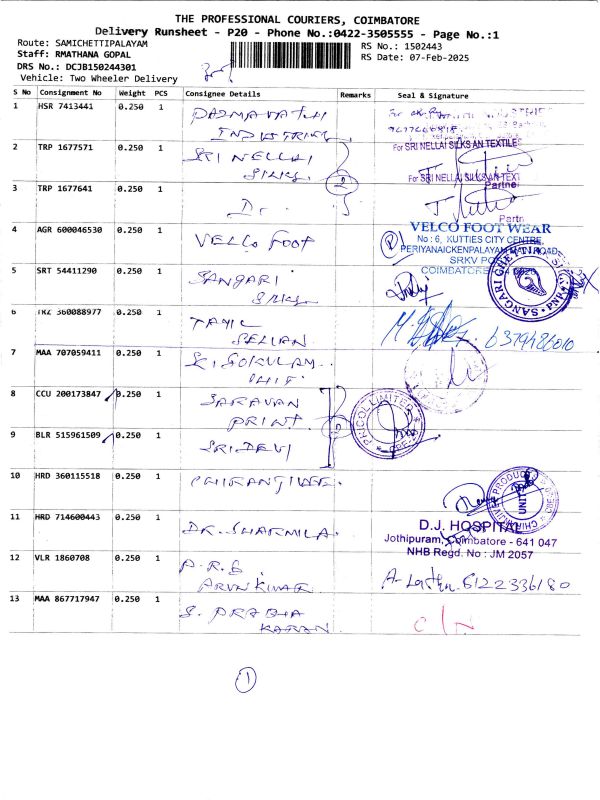 THE PROFESSIONAL COURIERS, COIMBATORE
Delivery Runsheet - P20 - Phone No.:0422-3505555 - Page No.:1
Route: SAMICHETTIPALAYAM
RS No.: 1502443
Staff: RMATHANA GOPAL
RS Date: 07-Feb-2025
DRS No.: DCJB150244301
Vehicle: Two Wheeler Delivery
S No Consignment No Weight PCS Consignee Details Remarks Seal & Signature
1 HSR 7413441 0.250 1 PADMAVATHI
INDUSTRIES
2 TRP 1677571 0.250 1 SRI NELLAI
SILKS
For SRI NELLAI SILKS AN TEXTILES
2
3 TRP 1677641 0.250 1 Do
For SRI NELLAI SILKS AN TEXT
Partner
Partn
4 AGR 600046530 0.250 1 VELCO FOOT
VELCO FOOT WEAR
No : 6, XUTTIES CITY CENTRE,
PERIYANAICKENPALAYAM MAIN ROAD
SRKV PO
COIMBATORE
5 SRT 54411290 0.250 1 SANGARI
SILKS
6 TKZ 360088977 0.250 1 TAMIL
SELVAN
7 MAA 707059411 0.250 1 SRI GOKULAM
8 CCU 200173847 0.250 1 SARAVAN
PRINT
PRICOL LIMITED
9 BLR 515961509 0.250 1 SRIDEVI
10 HRD 360115518 0.250 1
11 HRD 714600443 0.250 1 DR. SHARMILA.
UNIT
D.J. HOSPITAL
Jothipuram, Coimbatore - 641 047
NHB Regd. No : JM 2057
12 VLR 1860708 0.250 1 P.R.G.
ARUNKUMAR
13 MAA 867717947 0.250 1 S. PRABHA
KARAN.
1